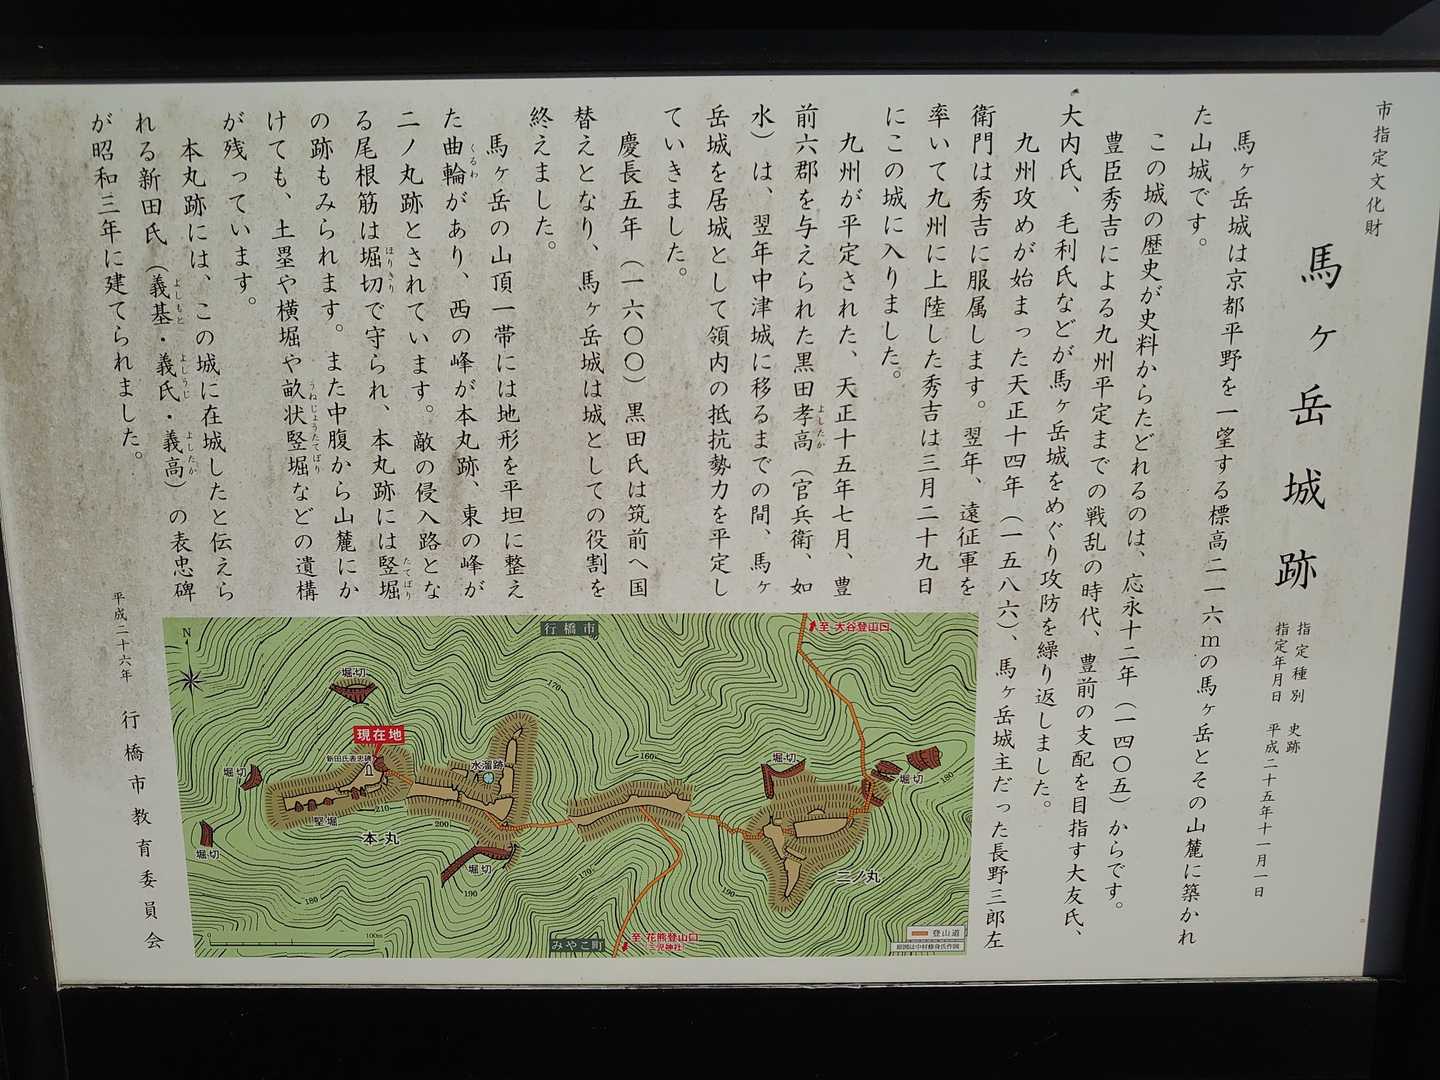 市指定文化財
馬ヶ岳城跡
指定種別 史跡
指定年月日 平成二十五年十一月一日
馬ヶ岳城は京都平野を一望する標高二一六ｍの馬ヶ岳とその山麓に築かれ
た山城です。
この城の歴史が史料からたどれるのは、応永十二年（一四〇五）からです。
豊臣秀吉による九州平定までの戦乱の時代、豊前の支配を目指す大友氏、
大内氏、毛利氏などが馬ヶ岳城をめぐり攻防を繰り返しました。
九州攻めが始まった天正十四年（一五八六）、馬ヶ岳城主だった長野三郎左
衛門は秀吉に服属します。翌年、遠征軍を
率いて九州に上陸した秀吉は三月二十九日
にこの城に入りました。
九州が平定された、天正十五年七月、豊
前六郡を与えられた黒田孝高（官兵衛、如
よしたか
水）は、翌年中津城に移るまでの間、馬ヶ
岳城を居城として領内の抵抗勢力を平定し
ていきました。
慶長五年（一六〇〇）黒田氏は筑前へ国
替えとなり、馬ヶ岳城は城としての役割を
終えました。
馬ヶ岳の山頂一帯には地形を平坦に整え
た曲輪があり、西の峰が本丸跡、東の峰が
くるわ
二ノ丸跡とされています。敵の侵入路とな
る尾根筋は堀切で守られ、本丸跡には竪堀
ほりきり
たてぼり
の跡もみられます。また中腹から山麓にか
けても、土塁や横堀や畝状竪堀などの遺構
うねじょうたてぼり
が残っています。
本丸跡には、この城に在城したと伝えら
れる新田氏（義基・義氏・義高）の表忠碑
よしもと
よしうじ
よしたか
が昭和三年に建てられました。
平成二十六年 行橋市教育委員会
N
行橋市
至 大谷登山口
堀切
170
現在地
新田氏表忠碑
水溜跡
160
堀切
堀切
堀切
180
210
200
竪堀
本丸
堀切
堀切
二ノ丸
170
190
190
180
0
100m
みやこ町
至 花熊登山口
三児神社
登山道
原図は中村修身氏作図